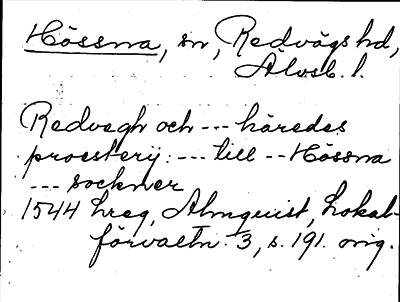 Hössna, sn, Redvägs hd,
Älvsb. l.
Redvegh och --- häredes
proesterij: --- till -- Hössna
--- sockner
1544 hreg, Almquist, Lokal-
förvaltn. 3, s. 191. orig.